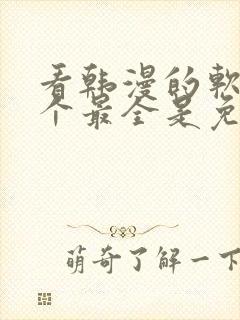 看韩漫的软
个最全是免
萌奇了解一下